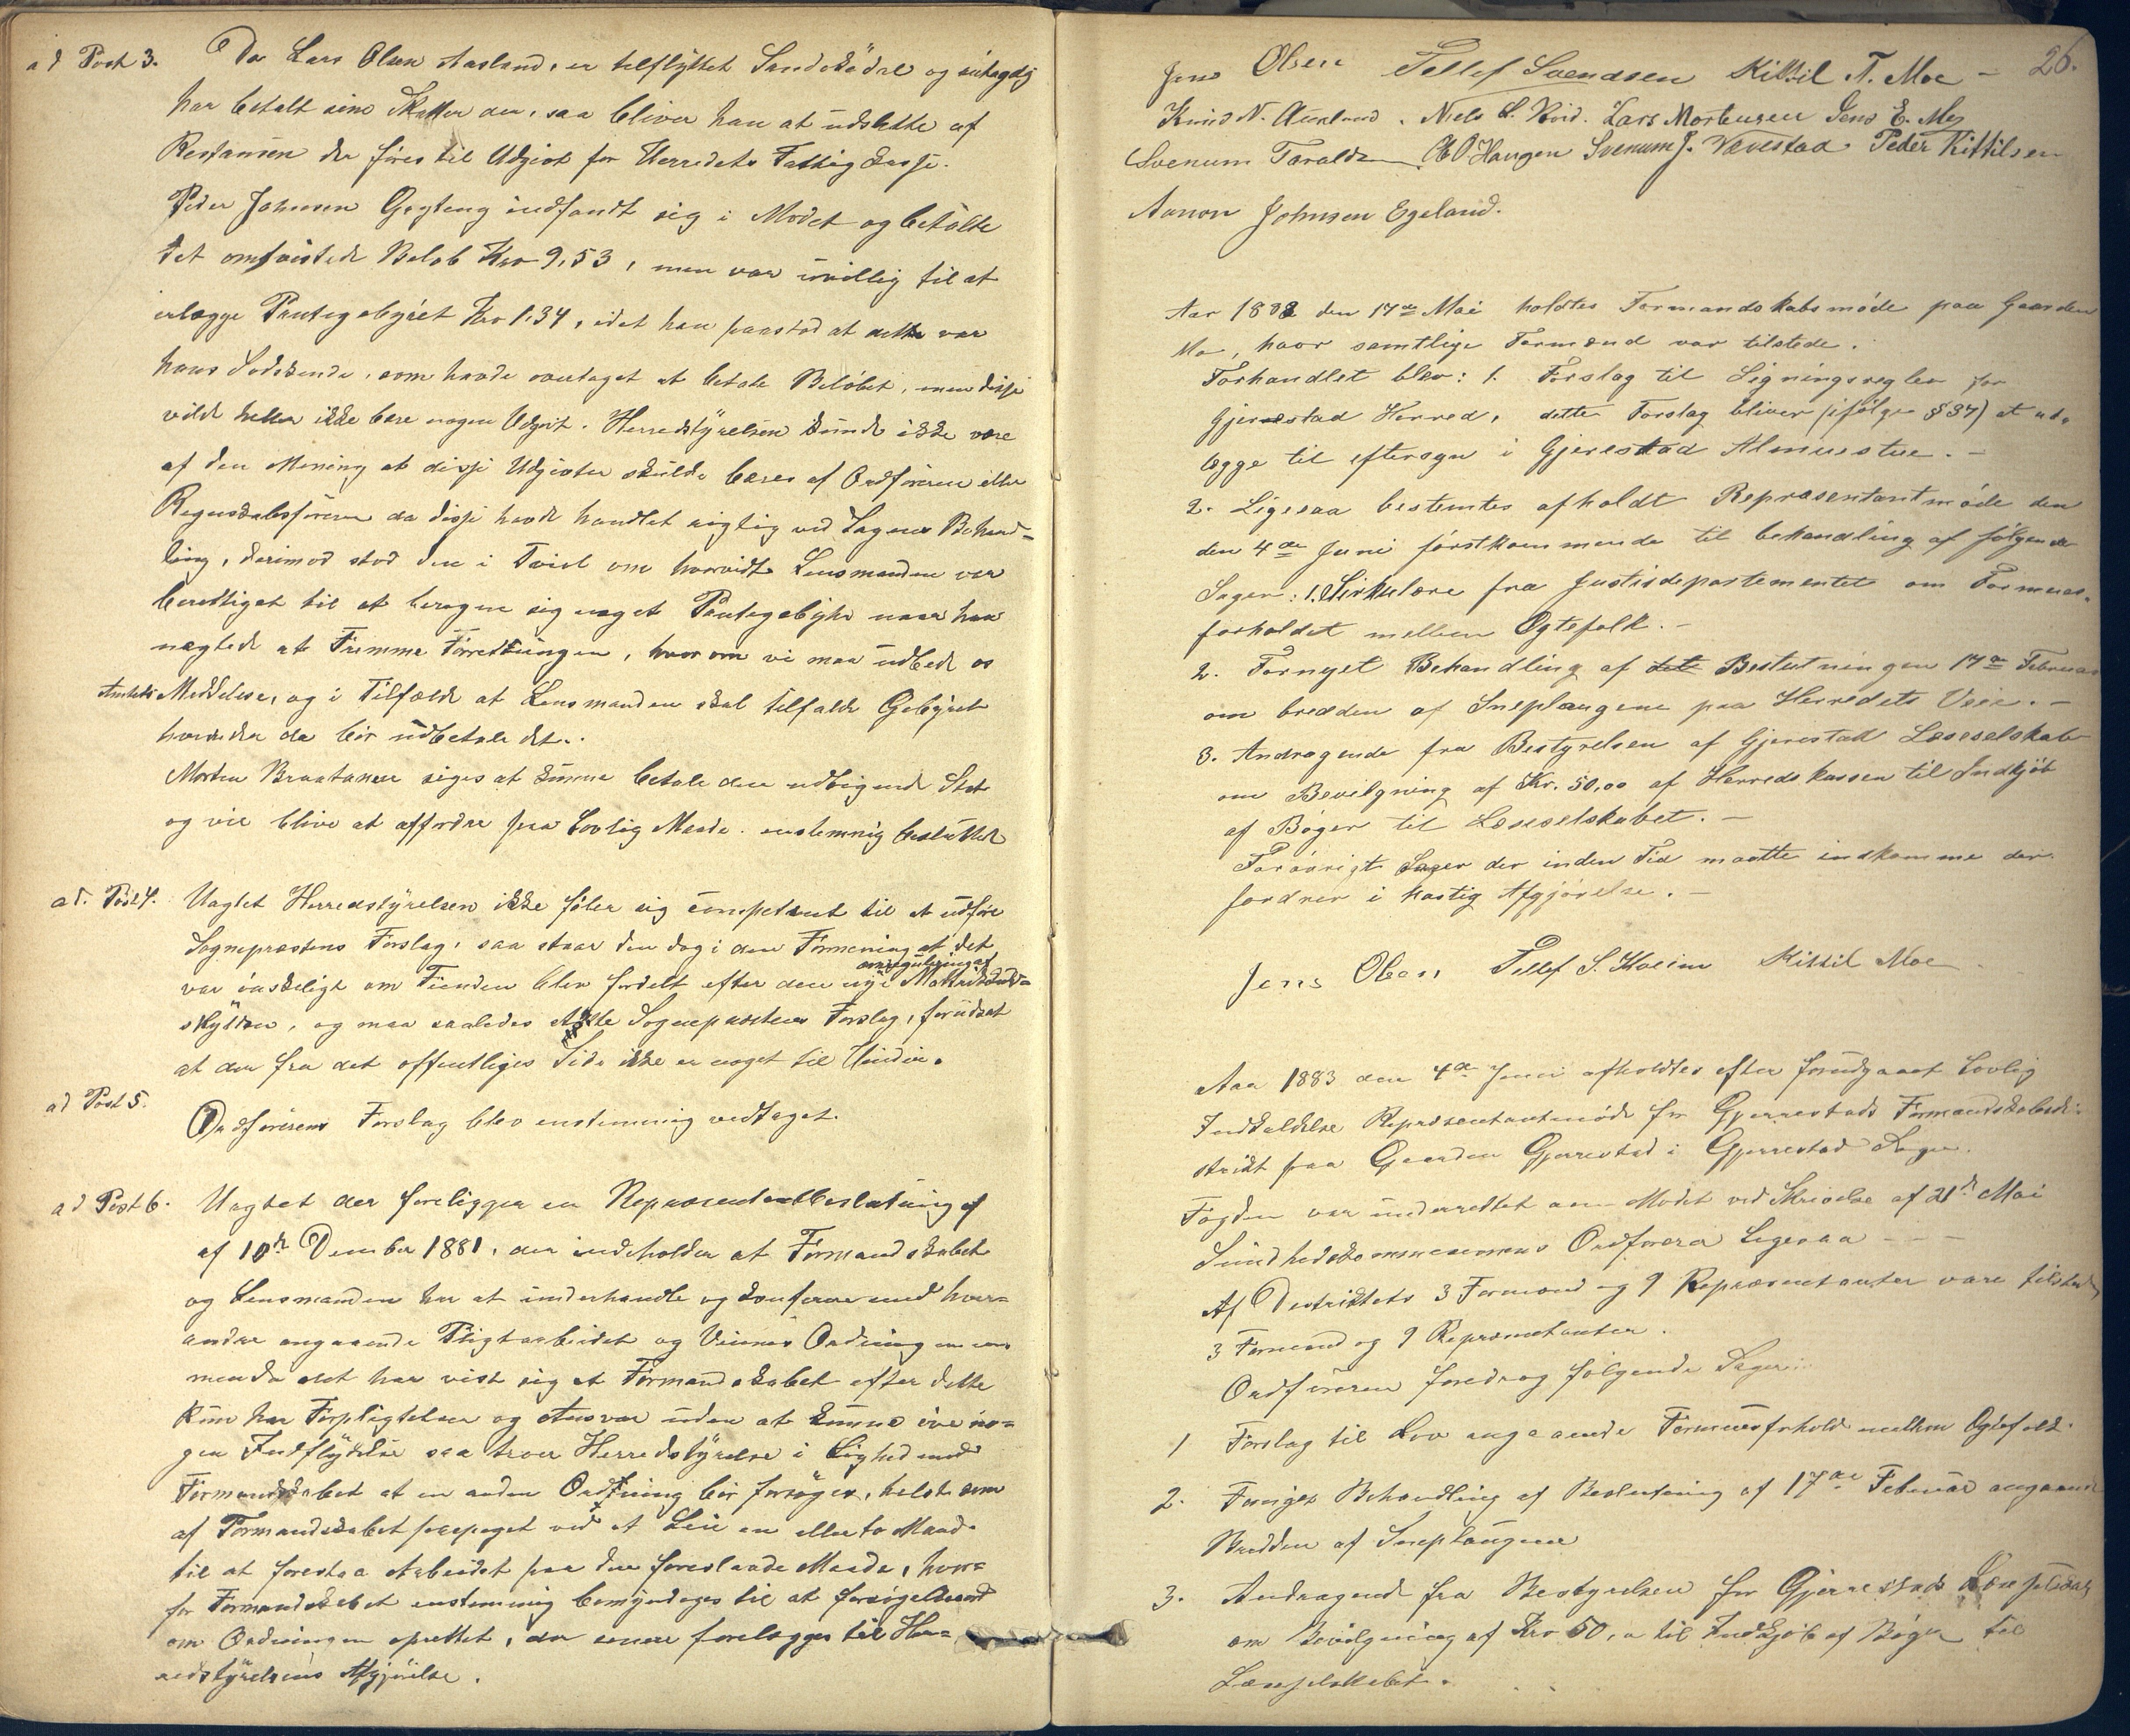 ad Post 3. Da Lars Olsen Aasland, er tilflyttet Sandökedal og
har betalt sine Skatter der, saa bliver han at udslette af
Restansen der föres til Udgivt for Herredets Fattigkasse.
Peder Johnsen Gryteng indfandt sig i Modet og betalte
det omtvistede Beløb Kro 9,53, men var uvillig til at
erlægge Pantegebyret Kro 1,34, idet han paastod at dette var
hans Sødskende, som havde overtaget at betale Beløbet, men disse
vilde heller ikke bære nogen Udgivt. Herredstyrelsen kunde ikke være
af den Mening at disse Udgivter skulde bæres af Ordføreren eller
Regnskabsføreren da disse havde handlet rigtig ved Sagens Behand-
ling, derimod stod den i Tvivl om hvorvidt Lensmanden var
berettiget til at beregne sig noget Pantegebyhr naar han
nægtede at Fremme Forretningen, hvorom vi maa udbede os
Amtets Meddelse, og i Tilfælde at Lensmanden skal tilfalde Gebyret
da bør udbetale det.
Morten Braatanen siges at kunne betale den udlignede Skat
og vil blive at affordre paa Lovlig Maade. enstemmig besluttet
ad. Post 4. Uagtet Herredstyrelsen ikke føler sig competent til at udføre
Sogneprestens Forslag, saa staar den dog i den Formening at det
var ønskeligt om Tienden blev fordelt efter den nye omregulering af Matrikkel-
skylden, og maa saaledes støtte Sogneprestens Forslag, forudsat
at der fra det offentliges Side ikke er noget til Hinder.
ad Post 5.
Ordførerens Forslag blev enstemmig vedtaget.
ad Post 6. Uagtet der foreligger en Repræsentantbeslutning af
af 10de December 1881, der indeholder at Formandskabet
og Lensmanden har at underhandle og konferere med hver-
andre angaaende Pligtarbeidet og Veienes Ordning
men da det har vist sig at Formandskabet efter dette
kun har Forpligtelser og Ansvar uden at kunne øve no-
gen Indflydelse saa troer Herredstyrelse i Lighed med
Formandskabet at en anden Ordning bør forsøges, helst som
af Formandskabet paapeget ved at Leie en eller to Mænd
til at forestaa Arbeidet paa den foreslaade Maade, hvor-
for Formandskabet enstemmig bemyndiges til at forsøge
om Ordningen oprettet, der senere forelægges til Her-
redstyrelsens Afgjørelse.
26.
Jens Olsen Tellef Svendsen Kittil T. Moe -
Knud N. Auslund. Niels L. Kvid. Lars Mortensen Jens E. Moe
Svenum Taraldsen O. O. Haugen Svenum J. Vævestad Peder Kittilsen
Aanon Johnsen Egeland.
Aar 1883 den 17de Mai holdtes Formandskabsmøde paa Gaarden
Mo, hvor samtlige Formænd var tilstede.
Forhandlet blev: 1. Forslag til Ligningsregler for
Gjerestad Herred, dette Forslag bliver (ifølge § 37) at ud-
lægge til eftersyn i Gjerestad Almuestue. -
2. Ligesaa bestemtes afholdt Repræsentantmøde den
den 4de Juni førstkommende til behandling af følgende
Sager: 1. Sirkulære fra Justisdepartementet om Formues-
forholdet mellem Ægtefolk. -
2. Fornyet Behandling af det Beslutningen 17de Februar
om bredden af Sneplougene paa Herredets Veie. -
3. Andragende fra Bestyrelsen af Gjerestad Læseselskab
om Bevilgning af Kr. 50,00 af Herredskassen til Indkjøb
af Bøger til Læseselskabet. -
Forøvrigt Sager der inden Tid maatte indkomme der
fordrer i hastig Afgjørelse. -
Jens Olsen Tellef S. Holm Kittil Moe
Aar 1883 den 4de Juni afholdtes efter forudgaaet Lovlig
Indkaldelse Repræsentantmøde for Gjerrestads Formandskabsdi-
strikt paa Gaarden Gjerrestad i Gjerrestad Sogn.
Fogden var underrettet om Mødet ved Skrivelse af 21de Mai
Sundhedskommisionens Ordfører Ligesaa - - -
Af Destriktets 3 Formænd og 9 Repræsentanter vare tilstede
3 Formænd og 9 Repræsentanter.
Ordføreren foredrog følgende Sager:
1 Forslag til Lov angaaende Formuesforhold mellem Ægtefolk.
2. Fornyet Behandling af Beslutning af 17de Februar angaaende
Bredden af Sneplougene
3. Andragende fra Bestyrelsen for Gjerrestads Læseselskab
om Bevilgning af Kro 50,00 til Indkjøb af Bøger til
Læseselskabet.